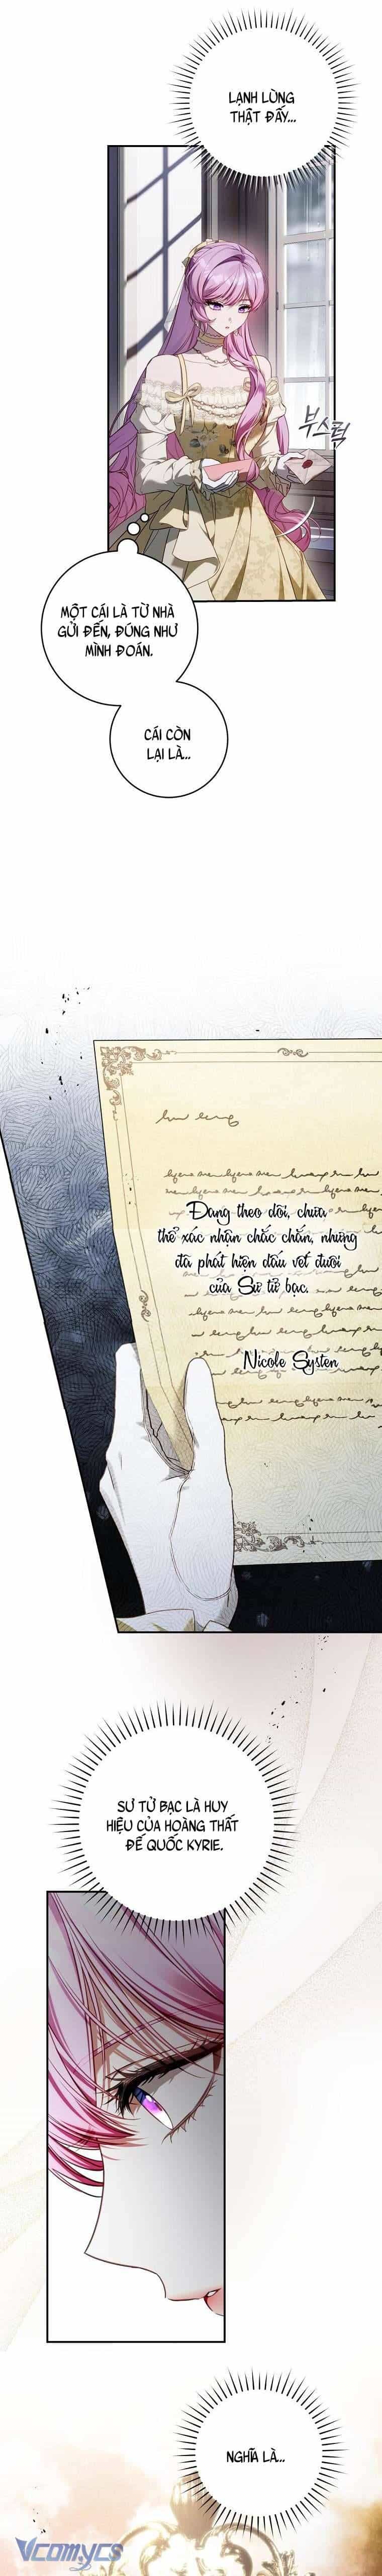 LẠNH LÙNG
THẬT ĐẤY...
부스럭
MỘT CÁI LÀ TỪ NHÀ
GỬI ĐẾN, ĐÚNG NHƯ
MÌNH ĐOÁN.
CÁI CÒN
LẠI LÀ...
Đang theo dõi, chưa
thể xác nhận chắc chắn, nhưng
đã phát hiện dấu vết đuôi
của Sư tử bạc.
Nicole Systen
SƯ TỬ BẠC LÀ HUY
HIỆU CỦA HOÀNG THẤT
ĐẾ QUỐC KYRIE.
NGHĨA LÀ...
Vcomycs